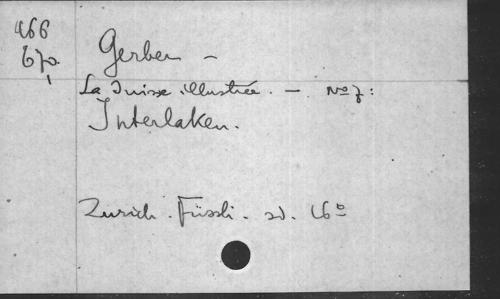 466
670
Gerber –
La Suisse illustrée. – No 7:
Interlaken.
Zurich. Füssli. sd. 16º